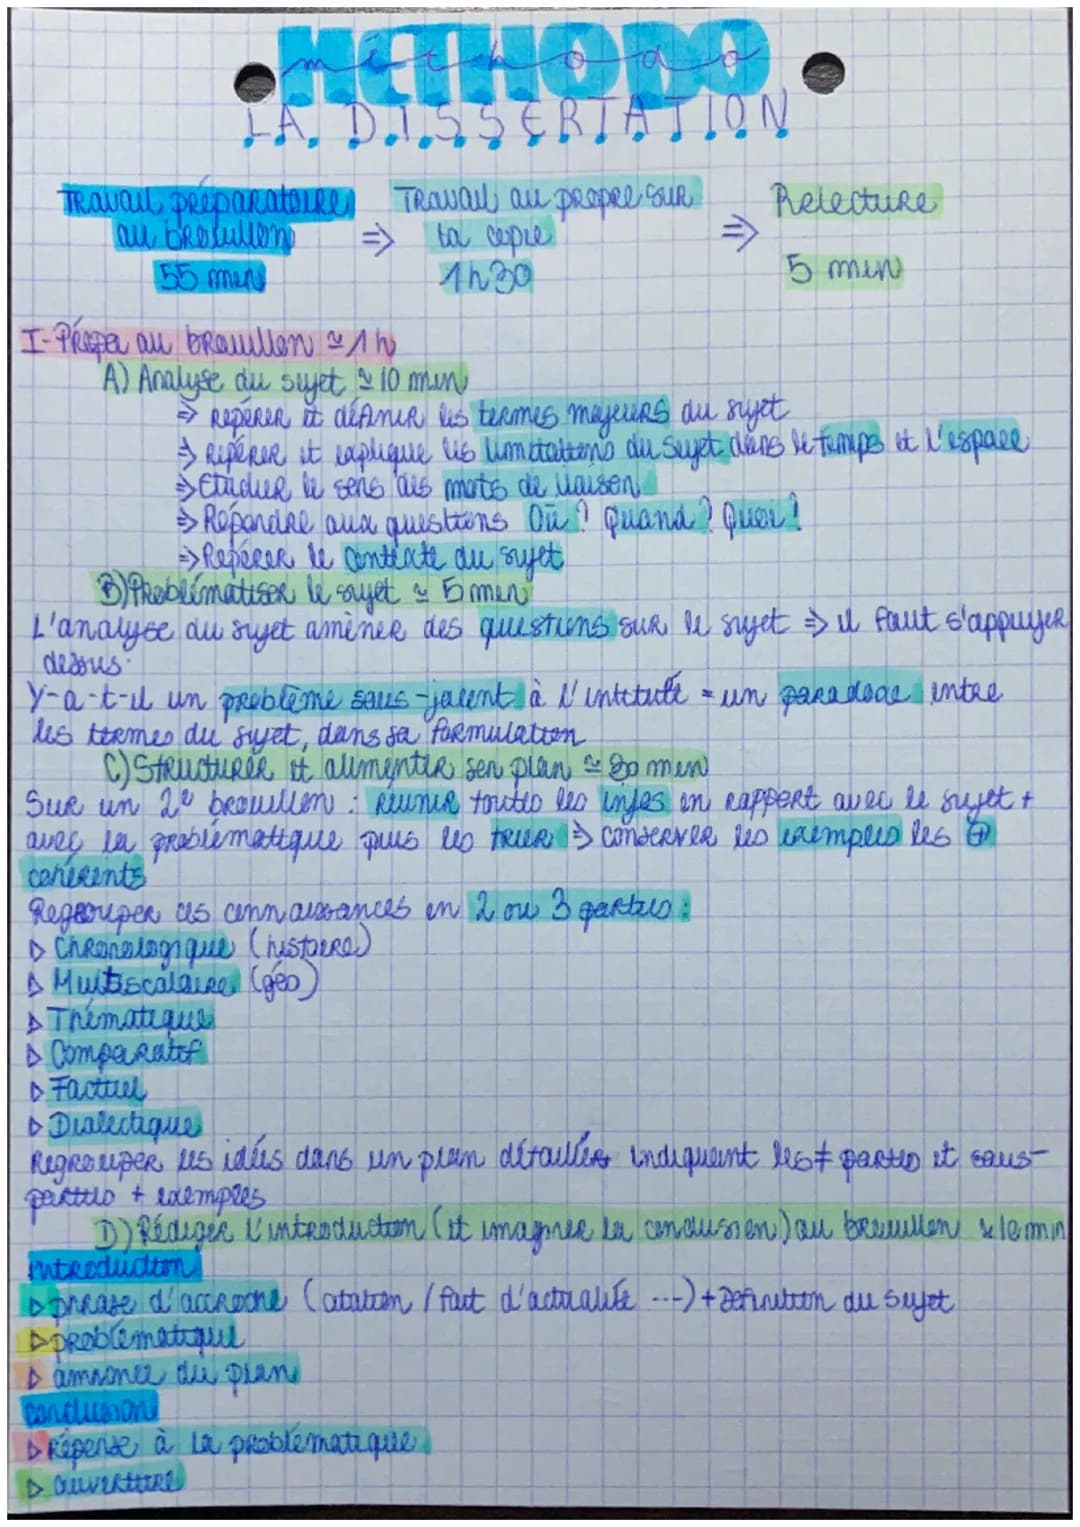 METHODO
méthodo
LA DISSERTATION
Travail préparatoire au brouillon 55 min ⇒ Travail au propre sur la copie 1h30 ⇒ Relecture 5 min
I-Prépa au brouillon ≃ 1h
A) Analyse du sujet ≃ 10 min
⇒ repérer et définir les termes majeurs du sujet
⇒ Repérer et explique les limitations du sujet dans le temps et l'espace
⇒ Etudier le sens des mots de liaison
⇒ Répondre aux questions Où ? Quand ? Quoi ?
⇒ Repérer le contexte du sujet
B) Problématiser le sujet ≃ 5 min
L'analyse du sujet amener des questions sur le sujet ⇒ il faut s'appuyer
dessus.
Y-a-t-il un problème sous-jacent à l'intitulé = un paradoxe entre
les termes du sujet, dans sa formulation
C) Structurer et alimenter son plan ≃ 30 min
Sur un 2e brouillon : réunir toutes les infos en rapport avec le sujet +
avec la problématique puis les trier ⇒ conserver les exemples les ⊕
cohérents
Regrouper ces connaissances en 2 ou 3 parties :
▷ Chronologique (histoire)
▷ Multiscalaire (géo)
▷ Thématique
▷ Comparatif
▷ Factuel
▷ Dialectique
Regrouper les idées dans un plan détaillés indiquant les ≠ parties et sous-
parties + exemples
D) Rédiger l'introduction (et imaginer la conclusion) au brouillon ≃ 10 min
introduction
▷ phrase d'accroche (citation / fait d'actualité ...) + définition du sujet
▷ problématique
▷ annonce du plan
conclusion
▷ réponse à la problématique
▷ ouverture